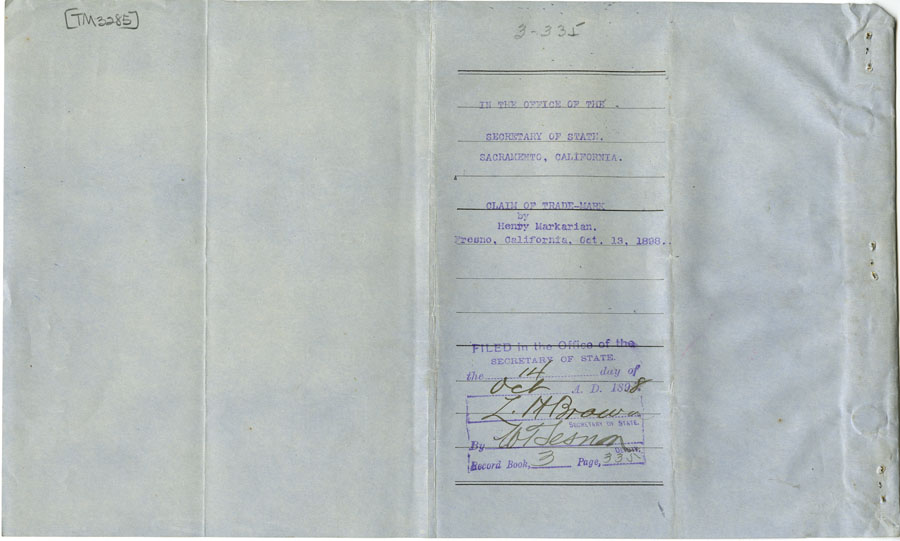 [TM3285]
3-335
IN THE OFFICE OF THE
SECRETARY OF STATE.
SACRAMENTO, CALIFORNIA.
CLAIM OF TRADE-MARK
by
Henry Markarian.
Fresno, California, Oct. 13, 1898.
FILED in the Office of the
SECRETARY OF STATE.
the 14 day of
Oct A. D. 1898
L. H Brown
SECRETARY OF STATE.
By
DEPUTY.
Record Book, 3 Page, 335